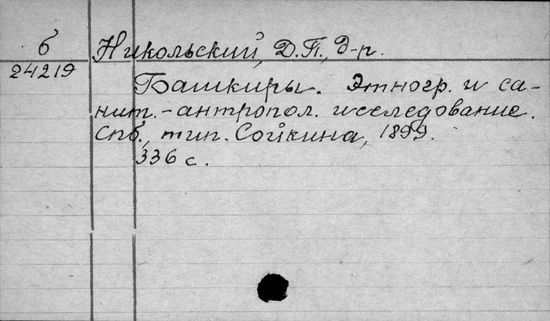 б Никольский, Д.П., д-р.
24219
Башкиры. Этногр. и са-
нит.-антропол. исследование.
Спб., тип. Сойкина, 1899.
336 с.